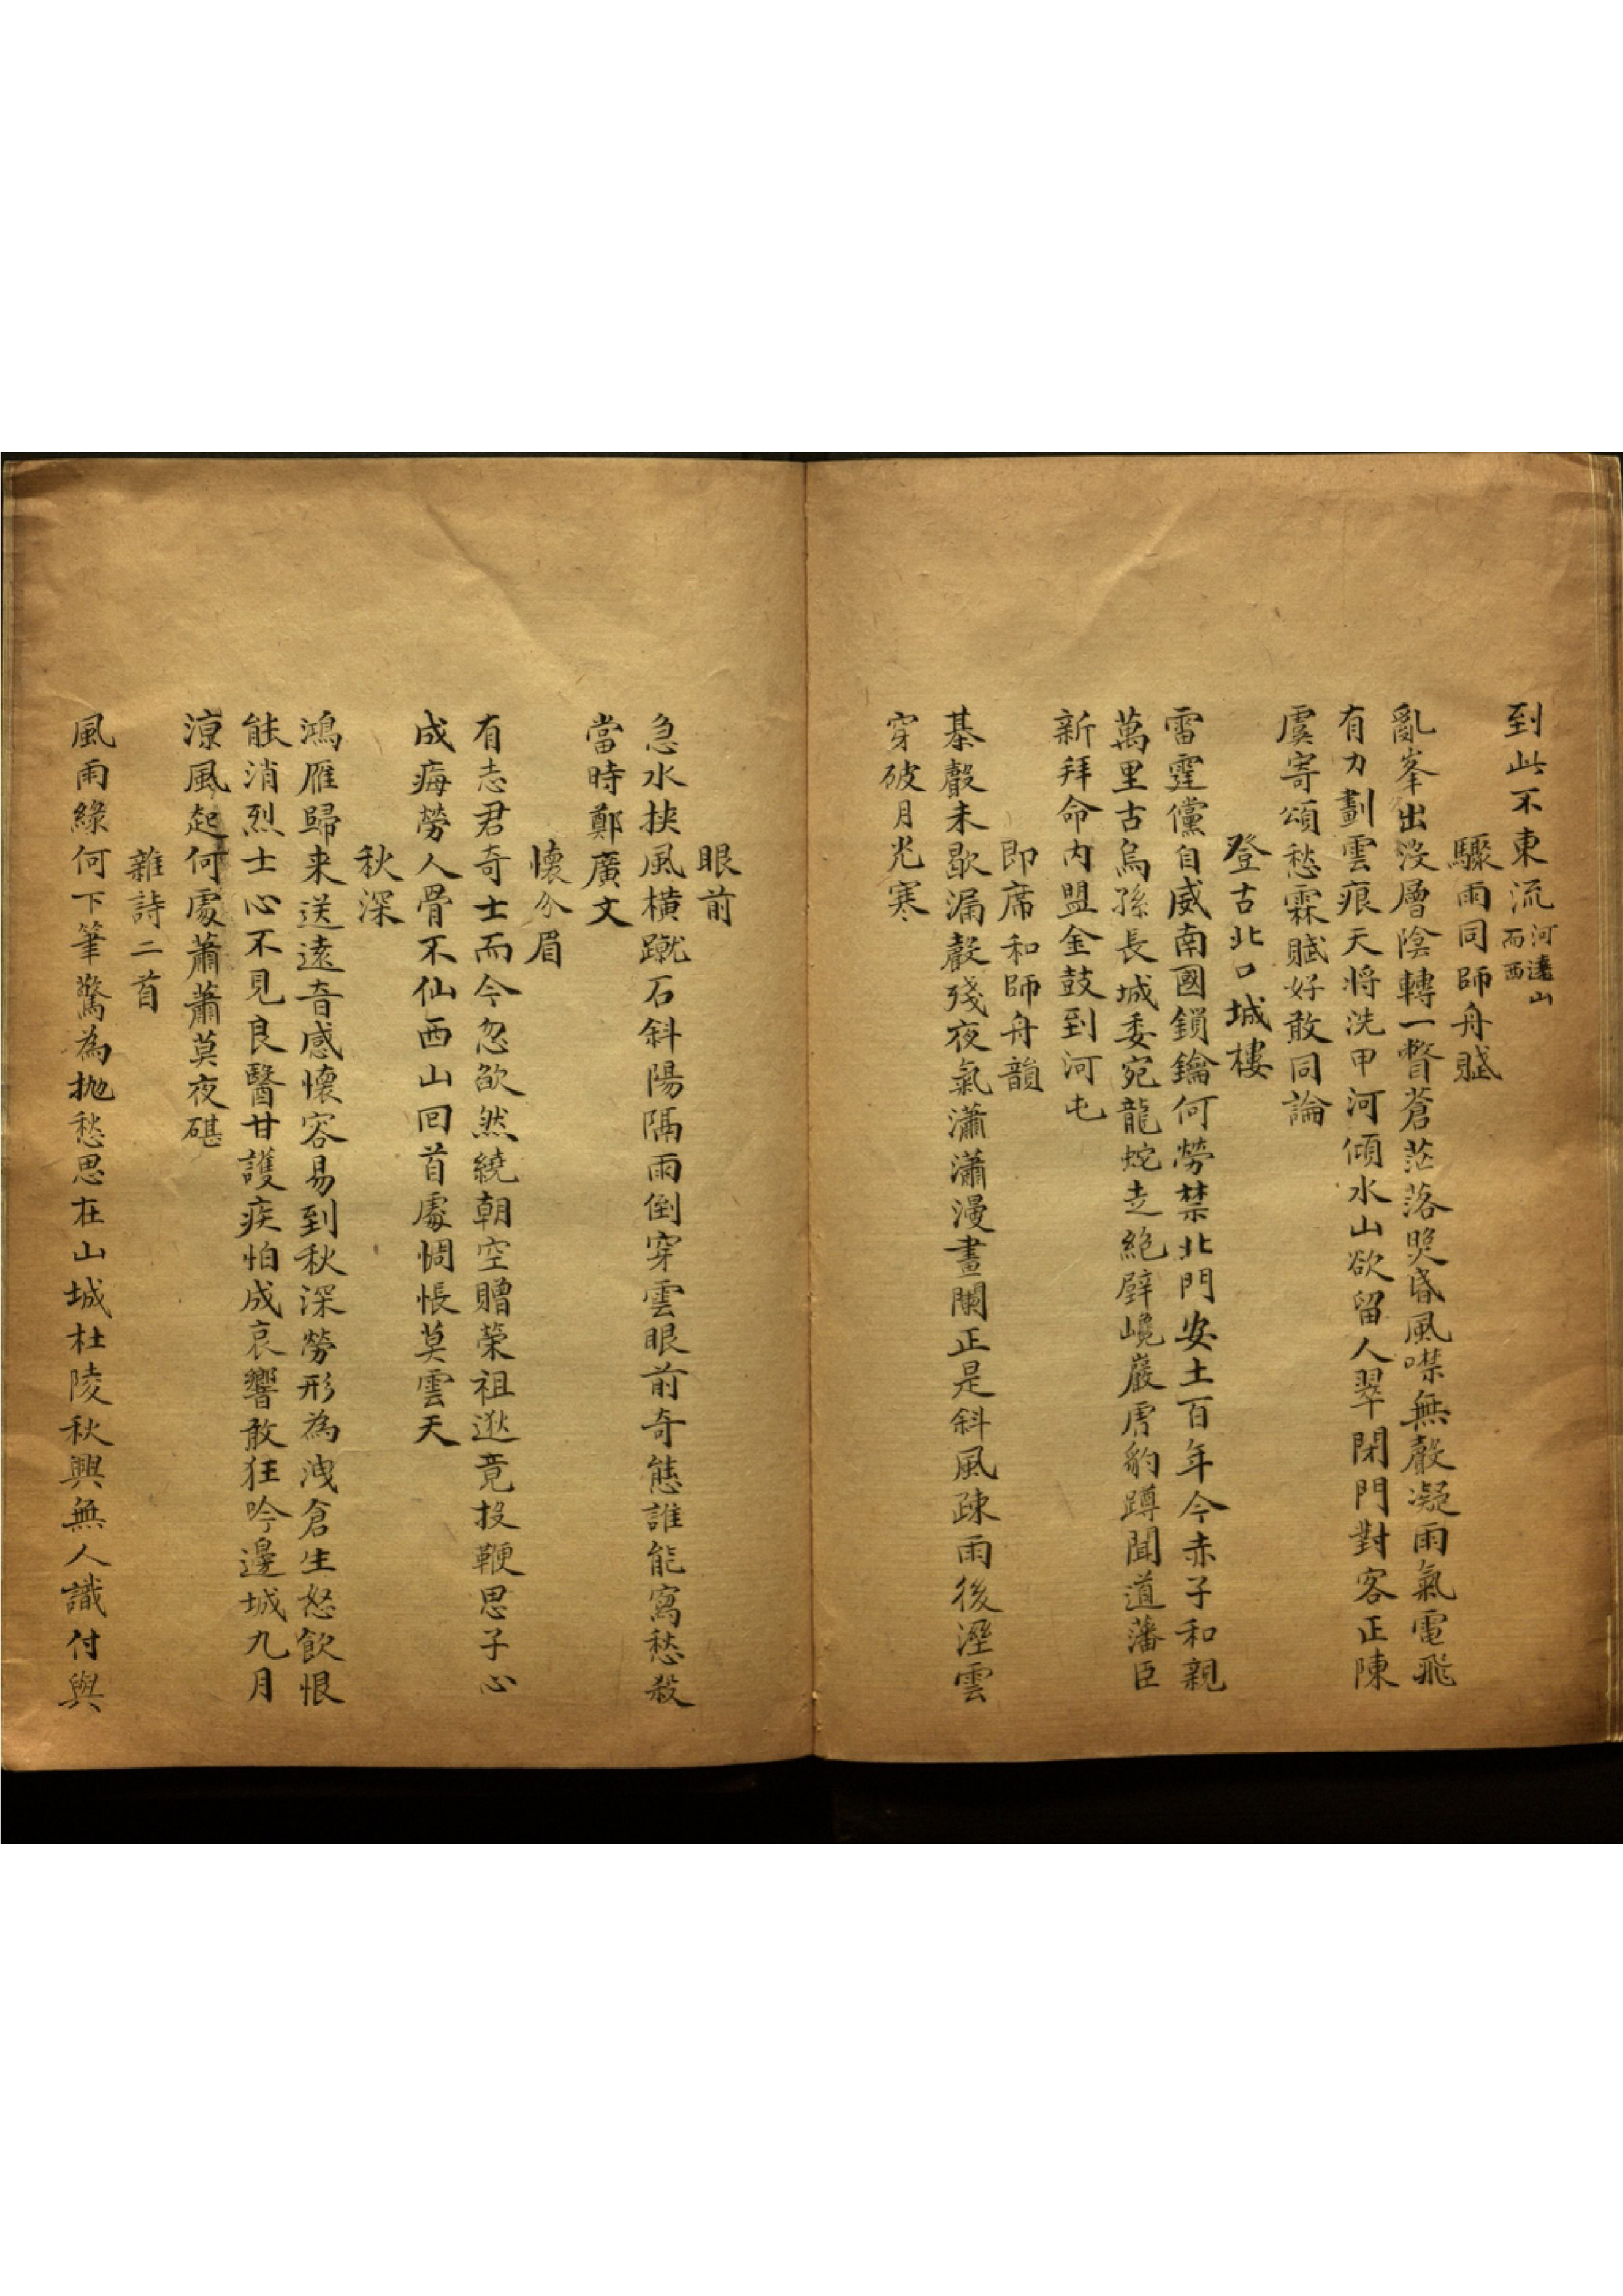 到此不東流河遶山而西
驟雨同師舟賦
亂峯出沒層陰轉一瞥蒼茫落照昏風噤無聲凝雨氣電飛
有力劃雲痕天將洗甲河傾水山欲留人翠閉門對客正陳
虞寄頌愁霖賦好敢同論
登古北口城樓
雷霆儻自威南國鎖鑰何勞禁北門安土百年今赤子和親
萬里古烏孫長城委宛龍蛇走絕壁巉巖虎豹蹲聞道藩臣
新拜命內盟金鼓到河屯
即席和師舟韻
棊聲未歇漏聲殘夜氣瀟瀟漫畫闌正是斜風疎雨後溼雲
穿破月光寒
眼前
急水挾風橫蹴石斜陽隔雨倒穿雲眼前奇態誰能寫愁殺
當時鄭廣文
懷介眉
有志君奇士而今忽欿然繞朝空贈策祖逖竟投鞭思子心
成痗勞人骨不仙西山回首處惆悵莫雲天
秋深
鴻雁歸来送遠音感懷容易到秋深勞形為洩倉生怒飲恨
能消烈士心不見良醫甘護疾怕成哀響敢狂吟邊城九月
涼風起何處蕭蕭莫夜碪
雜詩二首
風雨緣何下筆驚為拋愁思在山城杜陵秋興無人識付與